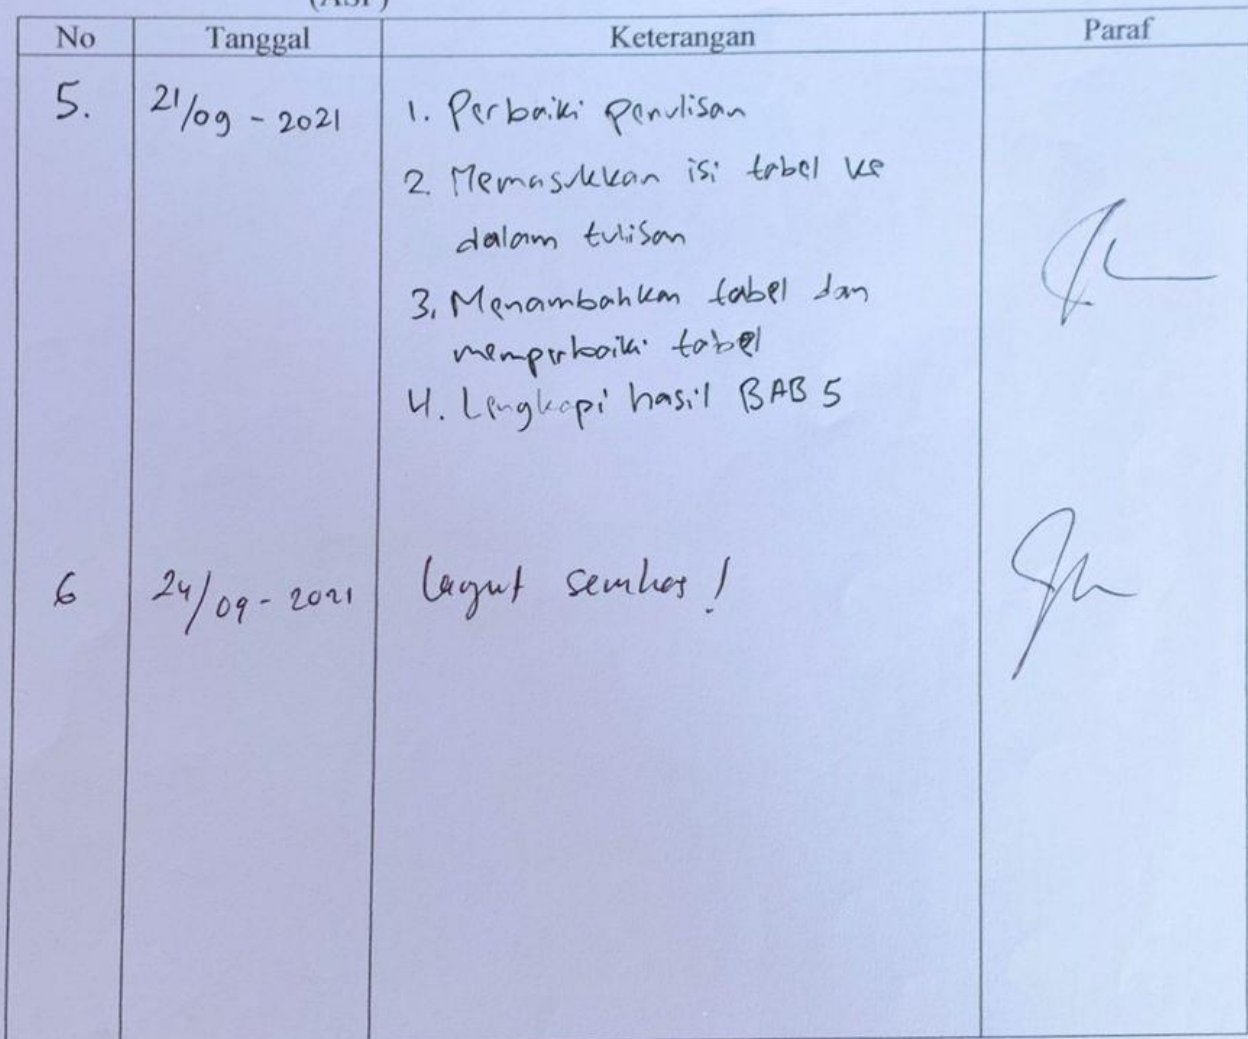 No Tanggal Keterangan Paraf
5. 21/09 - 2021 1. Perbaiki penulisan
2. Memasukkan isi tabel ke
dalam tulisan
3. Menambahkan tabel dan
memperbaiki tabel
4. Lengkapi hasil BAB 5
6 24/09 - 2021 Lanjut semhas !